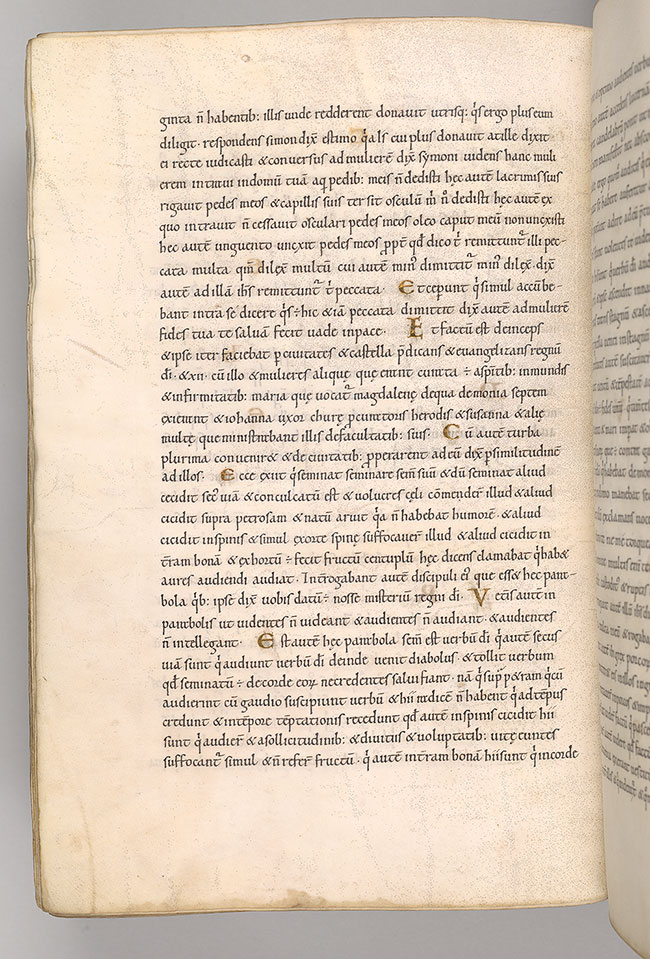 ginta n̄ habentib: illis unde redderent donavit utrisq: q̄s ergo plus eum
diligit. respondens simon dix̄ estimo q̄a is cui plus donavit at ille dixit
ei recte iudicasti & conversus ad mulierē dix̄ symoni uides hanc muli
erem intravi in domū tuā aq̄ pedib: meis n̄ dedisti hęc autē lacrimis suis
rigavit pedes meos & capillis suis tersit osculū m̄ n̄ dedisti hęc autē ex
quo intravit n̄ cessavit osculari pedes meos oleo caput meū non unxisti
hęc autē unguento unxit pedes meos ꝓpt̄ qđ dico t̄ remittunt̄ illi pec
cata multa qm̄ dilex̄ multū cui autē min᷒ dimittit᷒ min᷒ dilex̄. dix̄
autē ad illā ih̄s remittunt᷒ t̄ peccata. Et cęperunt q̄ simul accūbe
bant intra se dicere q̄s ÷ hic & iā peccata dimittit dix̄ autē ad mulierē
fides tua te salvā fecit vade in pace. Et factū est deinceps
& ipse iter faciebat p̱ civitates & castella p̄dicans & evangelizans regnū
dī. & xii. cū illo & mulieres aliquę quę erant curatę a sp̄itib: inmundis
& infirmitatib: maria quę vocat᷒ magdalenę de qua demonia septem
exierant & iohanna uxor churę ꝓcuratoris herodis & susanna & alię
multę quę ministrabant illis de facultatib: suis. Cū autē turba
plurima convenir& & de civitatib: ꝓperarent ad eū dix̄ p̱ similitudinē
ad illos. Ecce exiit q̄ seminat seminare sem̄ suū & dū seminat aliud
cecidit sec̄ viā & conculcatū est & volucres cęli cōmeder̄ illud & aliud
cicidit supra petrosam & natū aruit q̄a n̄ habebat humorē. & aliud
cicidit in spinis & simul exortę spinę suffocaver̄ illud & aliud cicidit in
t̄ram bonā & exhortū ÷ fecit fructū centuplū hęc dicens clamabat q̄ hab&
aures audiendi audiat. Int̄rogabant autē discipuli ei᷒ quę ess& hęc para
bola q̄b: ipse dix̄ vobis datū ÷ nosse misteriū regni dī. Vet̄is autē in
parabolis ut videntes n̄ videant & audientes n̄ audiant. & audientes
n̄ intellegant. Est autē hęc parabola sem̄ est verbū dī q̄ autē secus
viā sunt q̄ audiunt verbū dī deinde venit diabolus. & tollit verbum
qđ seminatū ÷ de corde eoꝝ ne credentes salvi fiant. nā q̄ sup̱ p&ram q̄ cū
audierint cū gaudio suscipiunt verbū & hii radicē n̄ habent q̄ ad tempus
credunt & in tempore tēptationis recedunt qđ autē in spinis cicidit hii
sunt q̄ audier̄ & a sollicitudinib: & divitiis & voluptatib: vitę euntes
suffocant᷒ simul & n̄ refer̄ fructū. q̄ autē in t̄ram bonā hii sunt q̄ in corde